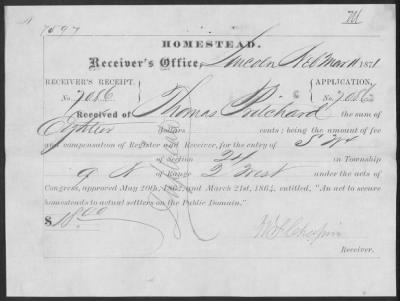 7597
HOMESTEAD.
Receiver's Office, Lincoln Neb Mar 11 1871
RECEIVER'S RECEIPT, APPLICATION,
No. 7086 No. 7086
Received of Thomas Pritchard the sum of
Eighteen dollars cents; being the amount of fee
and compensation of Register and Receiver, for the entry of S
of Section in Township
9 N of Range 2 West under the acts of
Congress, approved May 20th, 1862, and March 21st, 1864, entitled, "An act to secure
homesteads to actual settlers on the Public Domain."
$18.00
Receiver.